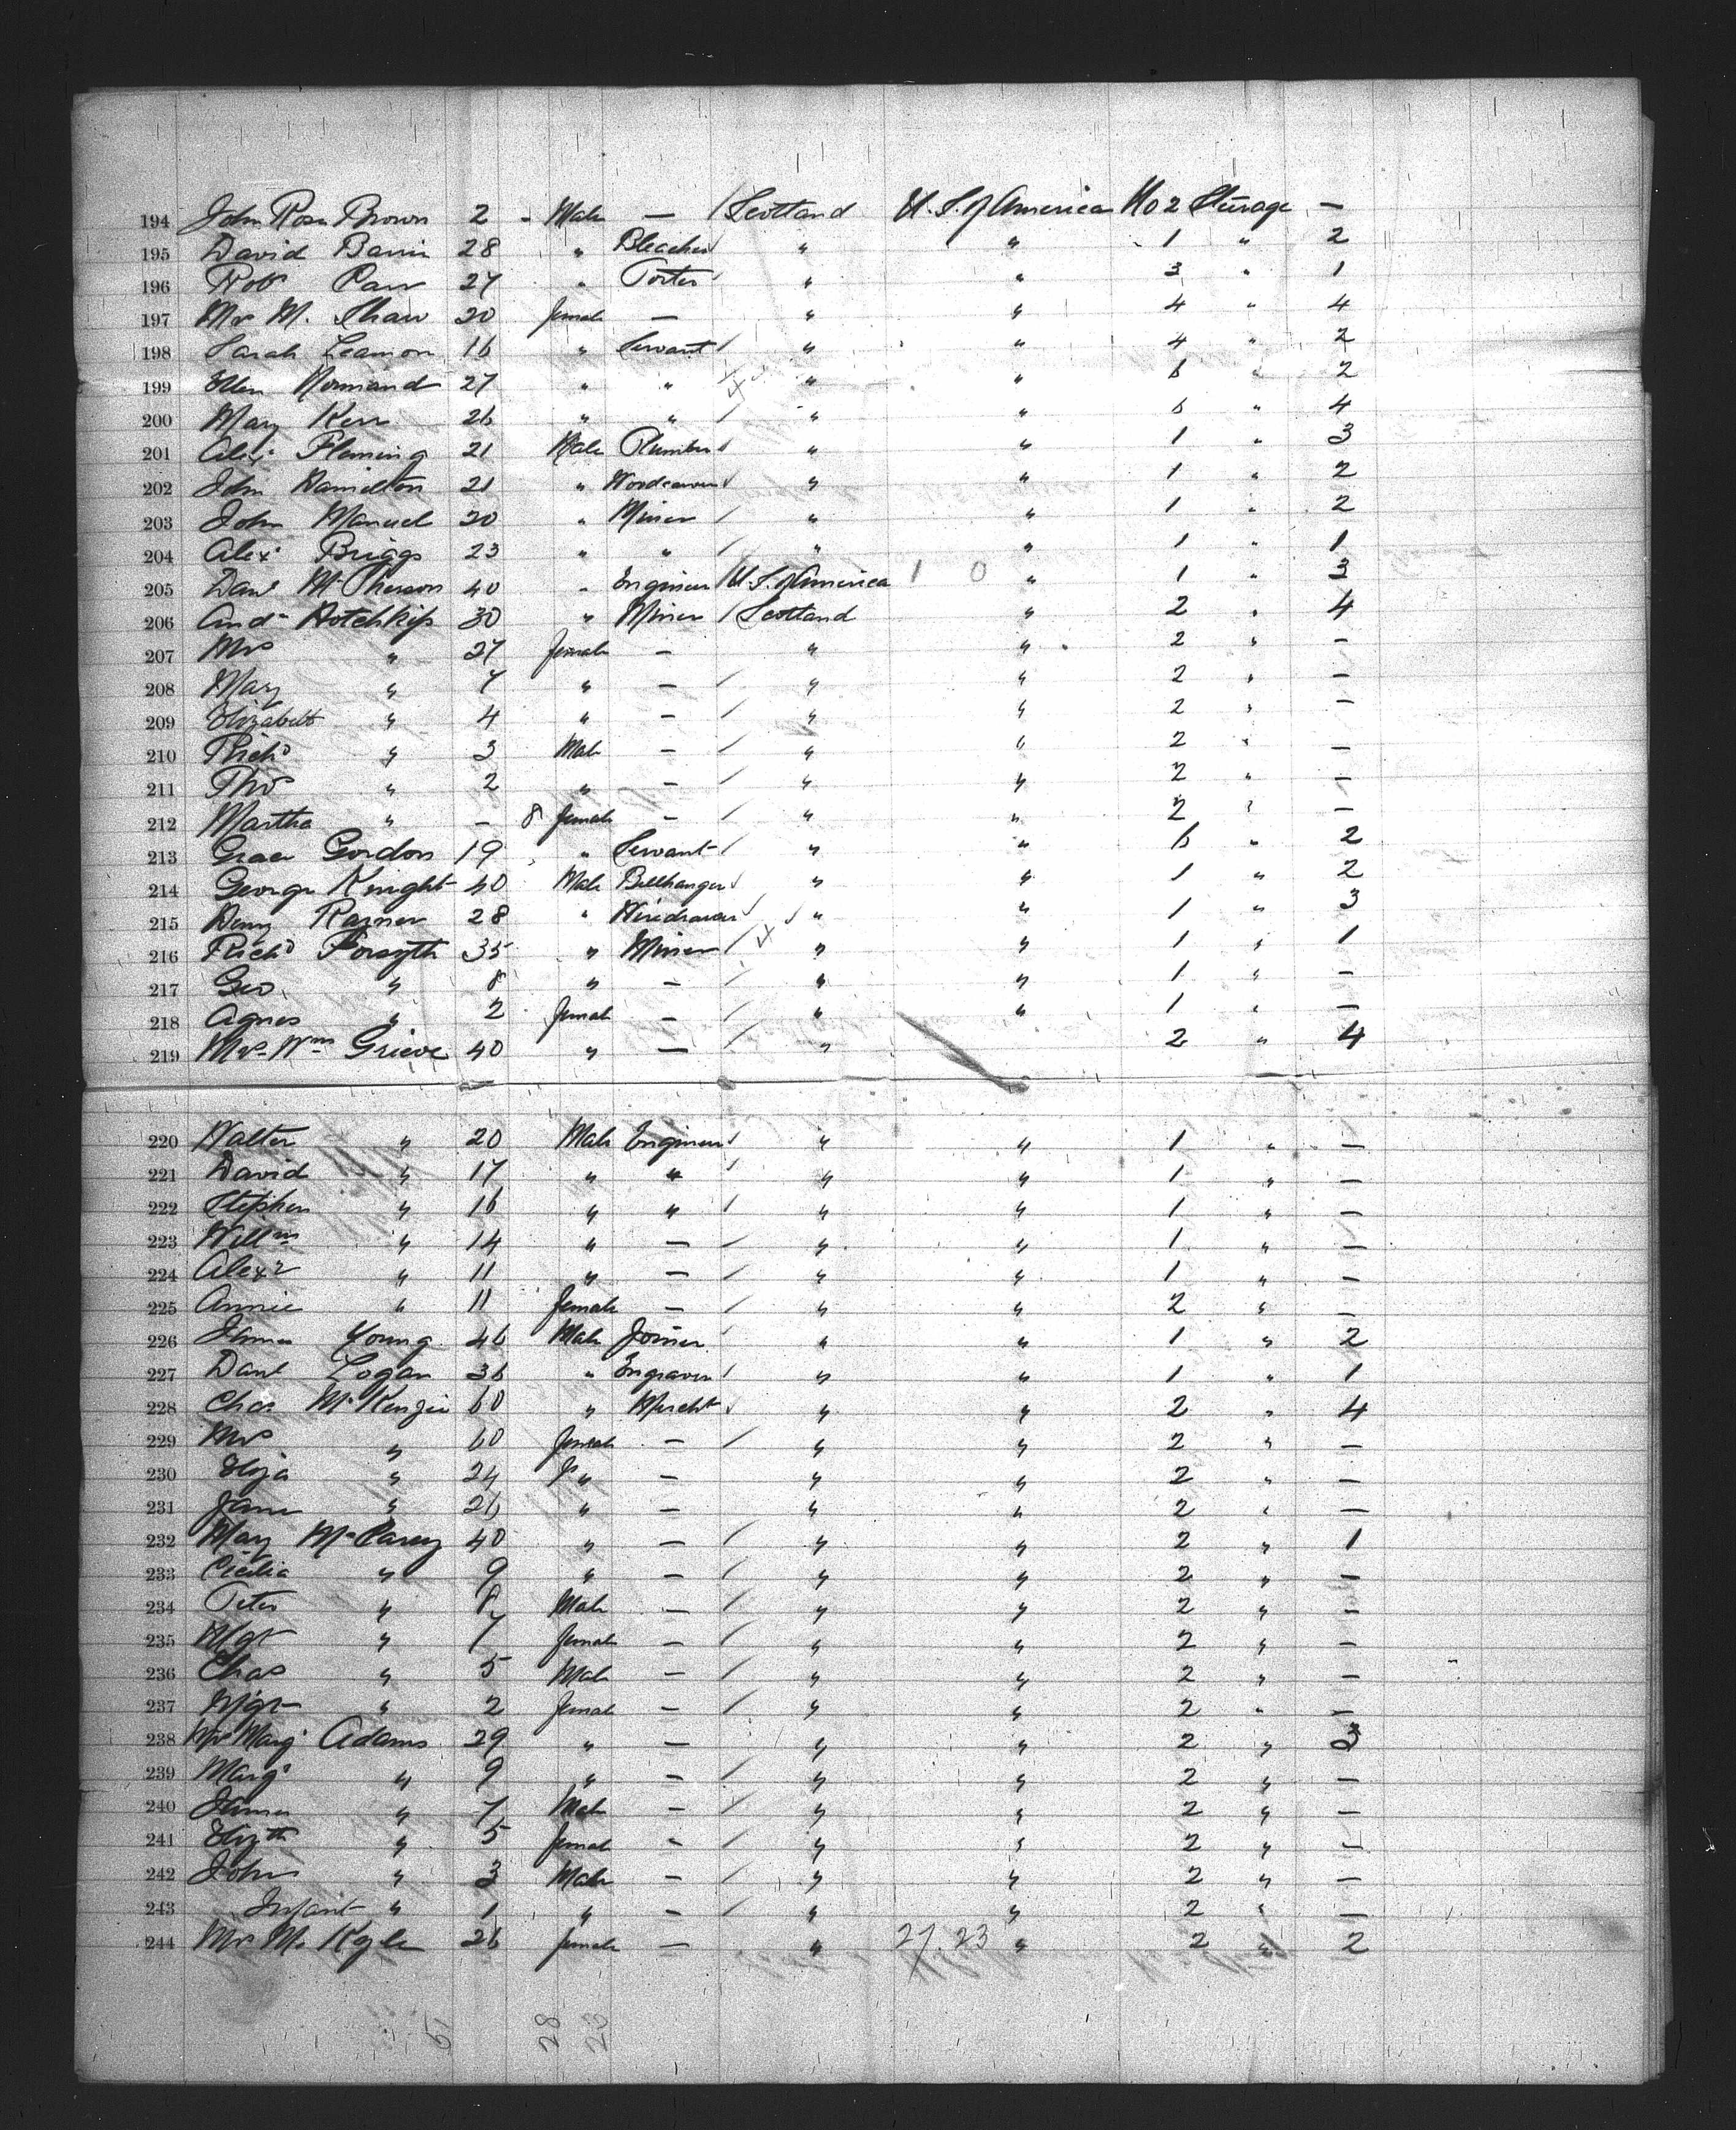 194 John Ross Brown 2 - Male — / Scotland U.S. of America No 2 Sturage —
195 David 28 " Bleacher " " 1 " 2
196 Robt 27 " Porter " " 3 " 1
197 Mrs M. Shaw 20 female — " " 4 " 4
198 Sarah Leamon 16 " Servant / " " 4 " 2
199 Ellen Normand 27 " " " " 6 " 2
200 Mary Kerr 26 " " / " " 6 " 4
201 Alexr Fleming 21 Male Plumber " " 1 " 3
202 John Hamilton 21 " " " 1 " 2
203 John Manuel 20 " Miner / " " 1 " 2
204 Alexr Briggs 23 " " / " " 1 " 1
205 Davd McPherson 40 " Engineer / U.S. of America 1 0 " 1 " 3
206 Andw Hotchkiss 30 " Miner / Scotland " 2 " 4
207 Mrs " 27 female — " " 2 " —
208 Mary " 7 " — / " " 2 " —
209 Elizabeth " 4 " — / " " 2 " —
210 Richd " 3 Male — / " " 2 " —
211 Thos " 2 " — / " " 2 " —
212 Martha " — 8 female — / " " 2 " —
213 Grace Gordon 19 " Servant / " " 6 " 2
214 George Knight 40 Male Bellhanger " " 1 " 2
215 Rayner 28 " " " 1 " 3
216 Richd Forsyth 35 " Miner / " " 1 " 1
217 Geo. " 8 " — / " " 1 " —
218 Agnes " 2 female — / " " 1 " —
219 Mrs Wm Grieve 40 " — / " " 2 " 4
220 Walter " 20 Male Engineer / " " 1 " —
221 David " 17 " " / " " 1 " —
222 Stephen " 16 " " / " " 1 " —
223 Willm " 14 " — / " " 1 " —
224 Alexr " 11 " — / " " 1 " —
225 Annie " 11 female — / " " 2 " —
226 James Young 46 Male Joiner / " " 1 " 2
227 Danl Logan 36 " Engraver / " " 1 " 1
228 Chas McKenzie 60 " Mercht " " 2 " 4
229 Mrs " 60 female — / " " 2 " —
230 Eliza " 24 " — " " 2 " —
231 Jane " 26 " — " " 2 " —
232 Mary 40 " — / " " 2 " 1
233 Cicilia " 9 " — / " " 2 " —
234 Peter " 8 Male — / " " 2 " —
235 Mgt " 7 female — / " " 2 " —
236 Chas " 5 Male — / " " 2 " —
237 Mgt " 2 female — / " " 2 " —
238 Mrs Margt Adams 29 " — " " 2 " 3
239 Margt " 9 " — / " " 2 " —
240 James " 7 Male — / " " 2 " —
241 Elizth " 5 female — / " " 2 " —
242 John " 3 Male — / " " 2 " —
243 Infant " 1 " — / " " 2 " —
244 Mrs M. Kyle 26 female — " 27.23 " 2 " 2
28 23